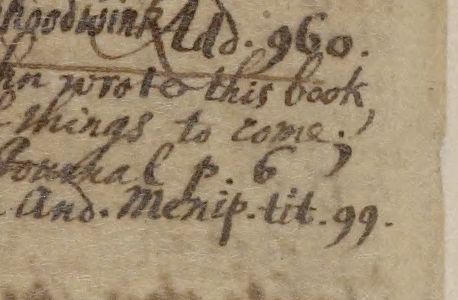 hoodwink Add. 960.
hn wrote this book
things to come.)
Journal p. 6
And. Menip. tit. 99.